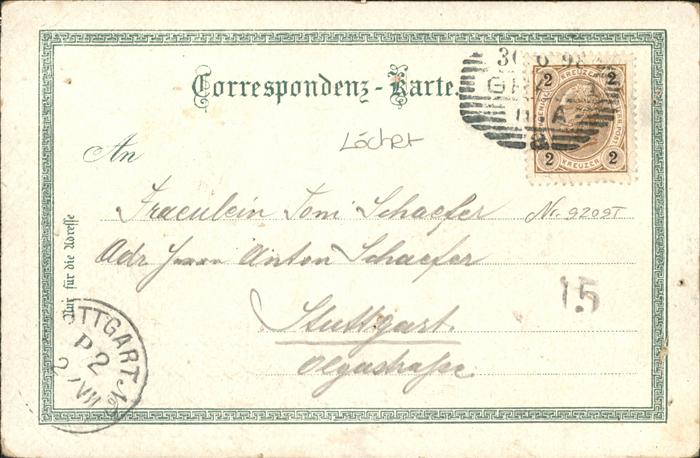 Correspondenz-Karte.
30 6 98
GRAZ 1
11 A
2 KREUZER 2
2 KREUZER 2
Löcher
An
Fraeulein Toni Schaefer
Nr. 9209T
Adr Herrn Anton Schaefer
Nur für die Adresse
15
Stuttgart.
Olgastraße
STUTTGART No
P 2
2 VII